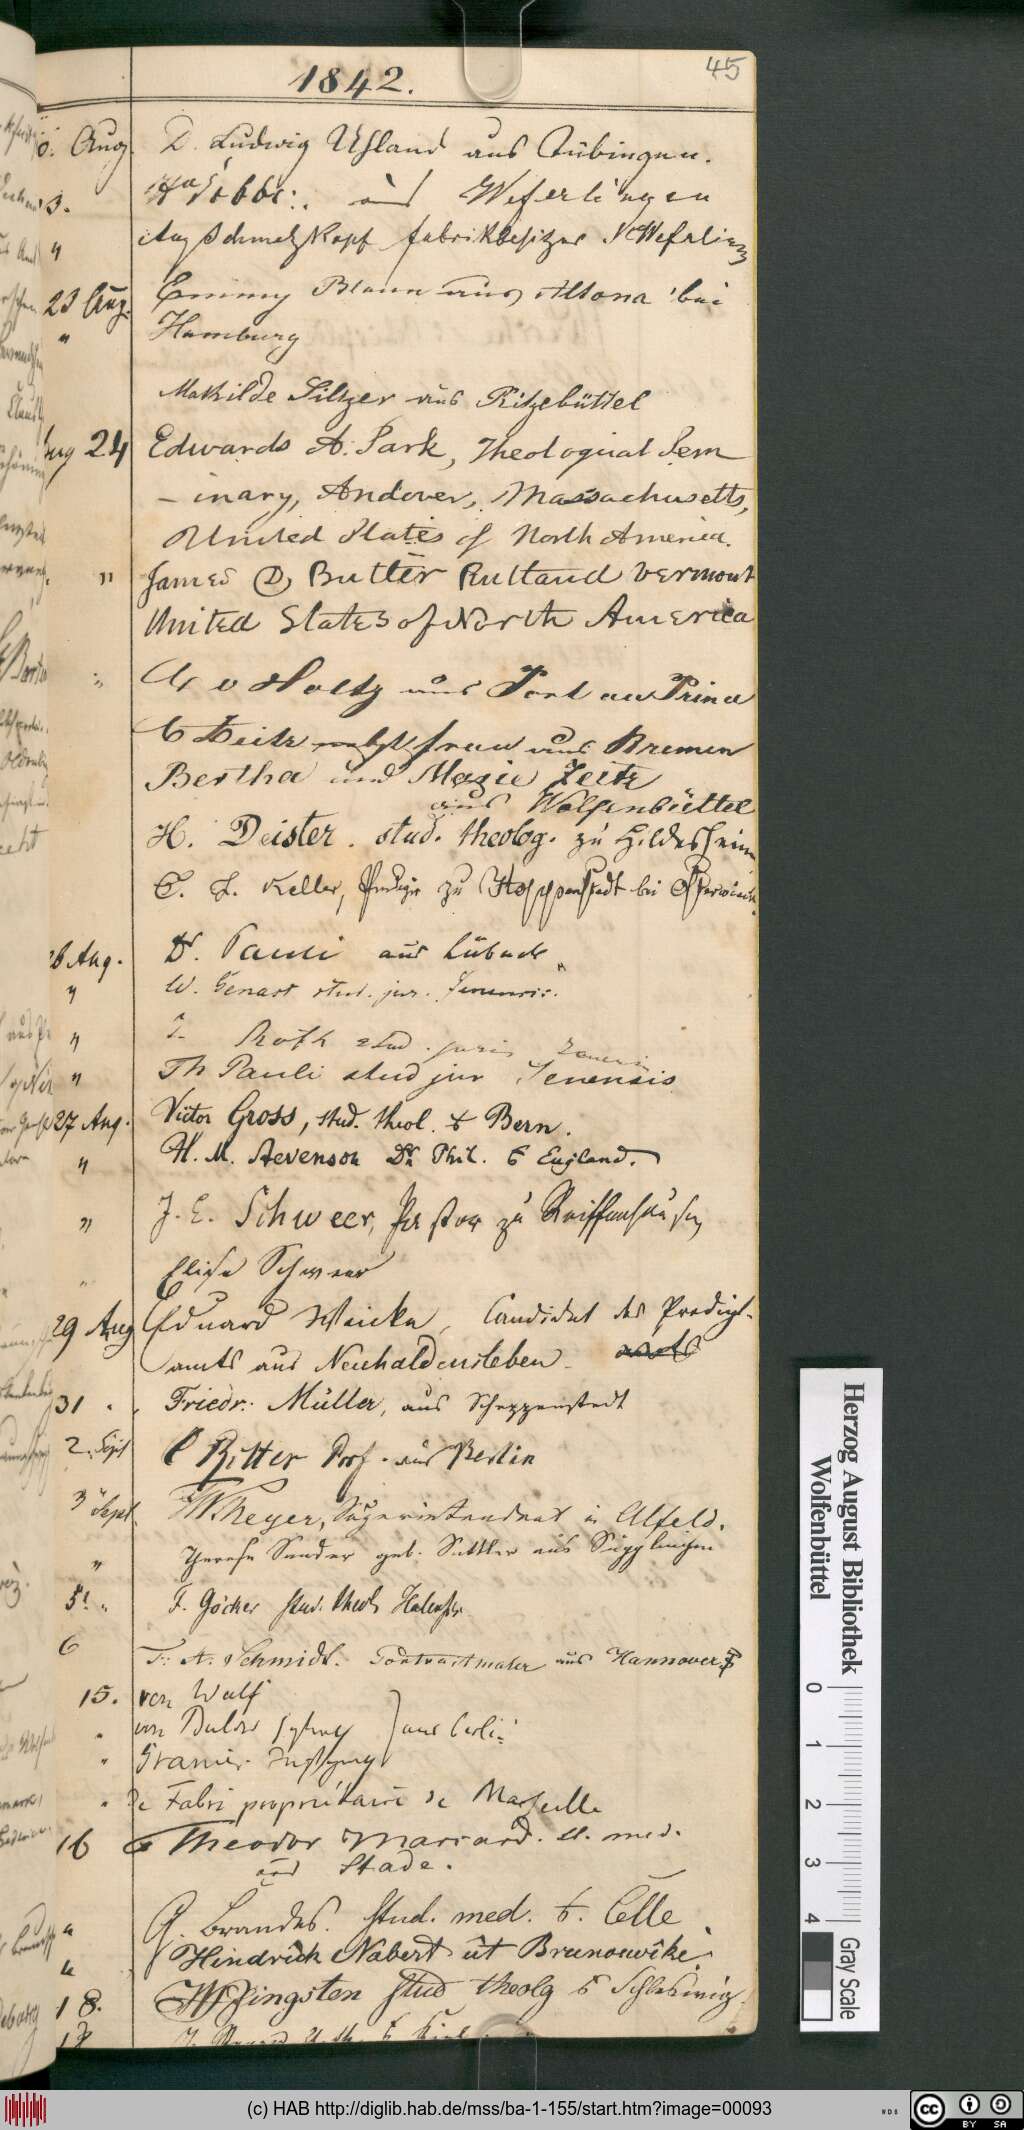 45
1842.
Aug. D. Ludwig Uhland aus Tübingen.
3. aus Weferlingen
" Aug Schmelzkopf fabrikbesitzer Weferlingen
23 Aug. Emmy Braun aus Altona bei
" Hamburg
Mathilde Siltzer aus Ritzebüttel
Aug 24 Edwards A. Park, Theological Sem
-inary, Andover, Massachusetts,
United States of North America.
" James D Butler Rutland Vermont
United States of North America
v Holtz aus Port au Prince
Zeitz nebst frau aus Bremen
Bertha und Marie Zeitz
aus Wolfenbüttel
H. Deister. stud. theolog. zu Hildesheim
C. L. Keller, Prediger zu Hoppenstedt bei Osterwieck
26 Aug. Dr. Pauli aus Lübeck
" W. Genast stud. jur. Jenensis.
" Roth stud. juris Jenensis
" Th Pauli stud jur Jenensis
27 Aug. Victor Gross, stud. theol. Bern.
" H. M. Stevenson Dr. Phil. England.
" J. E. Schweer, Pastor zu Reiffenhausen
" Elise Schweer
29 Aug Eduard Weicke, Candidat des Predigt-
amts aus Neuhaldensleben
31 Friedr. Müller, aus Scheppenstedt
2. Sept C Ritter Prof. aus Berlin
3 Sept. W. Meyer, Superintendent in Alfeld.
" Therese Sander geb. Sattler aus Süpplingen
5. " F. Göcker stud. theol. Halensis.
6 F. A. Schmidt. Portraitmaler aus Hannover
15. von Wulf
" von Bulow } aus Berlin
" Granier
" De Fabri propriétaire de Marseille
16 Theodor Marcard. st. med.
aus Stade.
" G. Brandes. stud. med. Celle.
" Hindrick Nabert ût Brunouwîke.
18. W Pingsten stud theolg Schleswig.
Herzog August Bibliothek
Wolfenbüttel
0 1 2 3 4
Gray Scale
(c) HAB http://diglib.hab.de/mss/ba-1-155/start.htm?image=00093
WDB
cc
BY SA